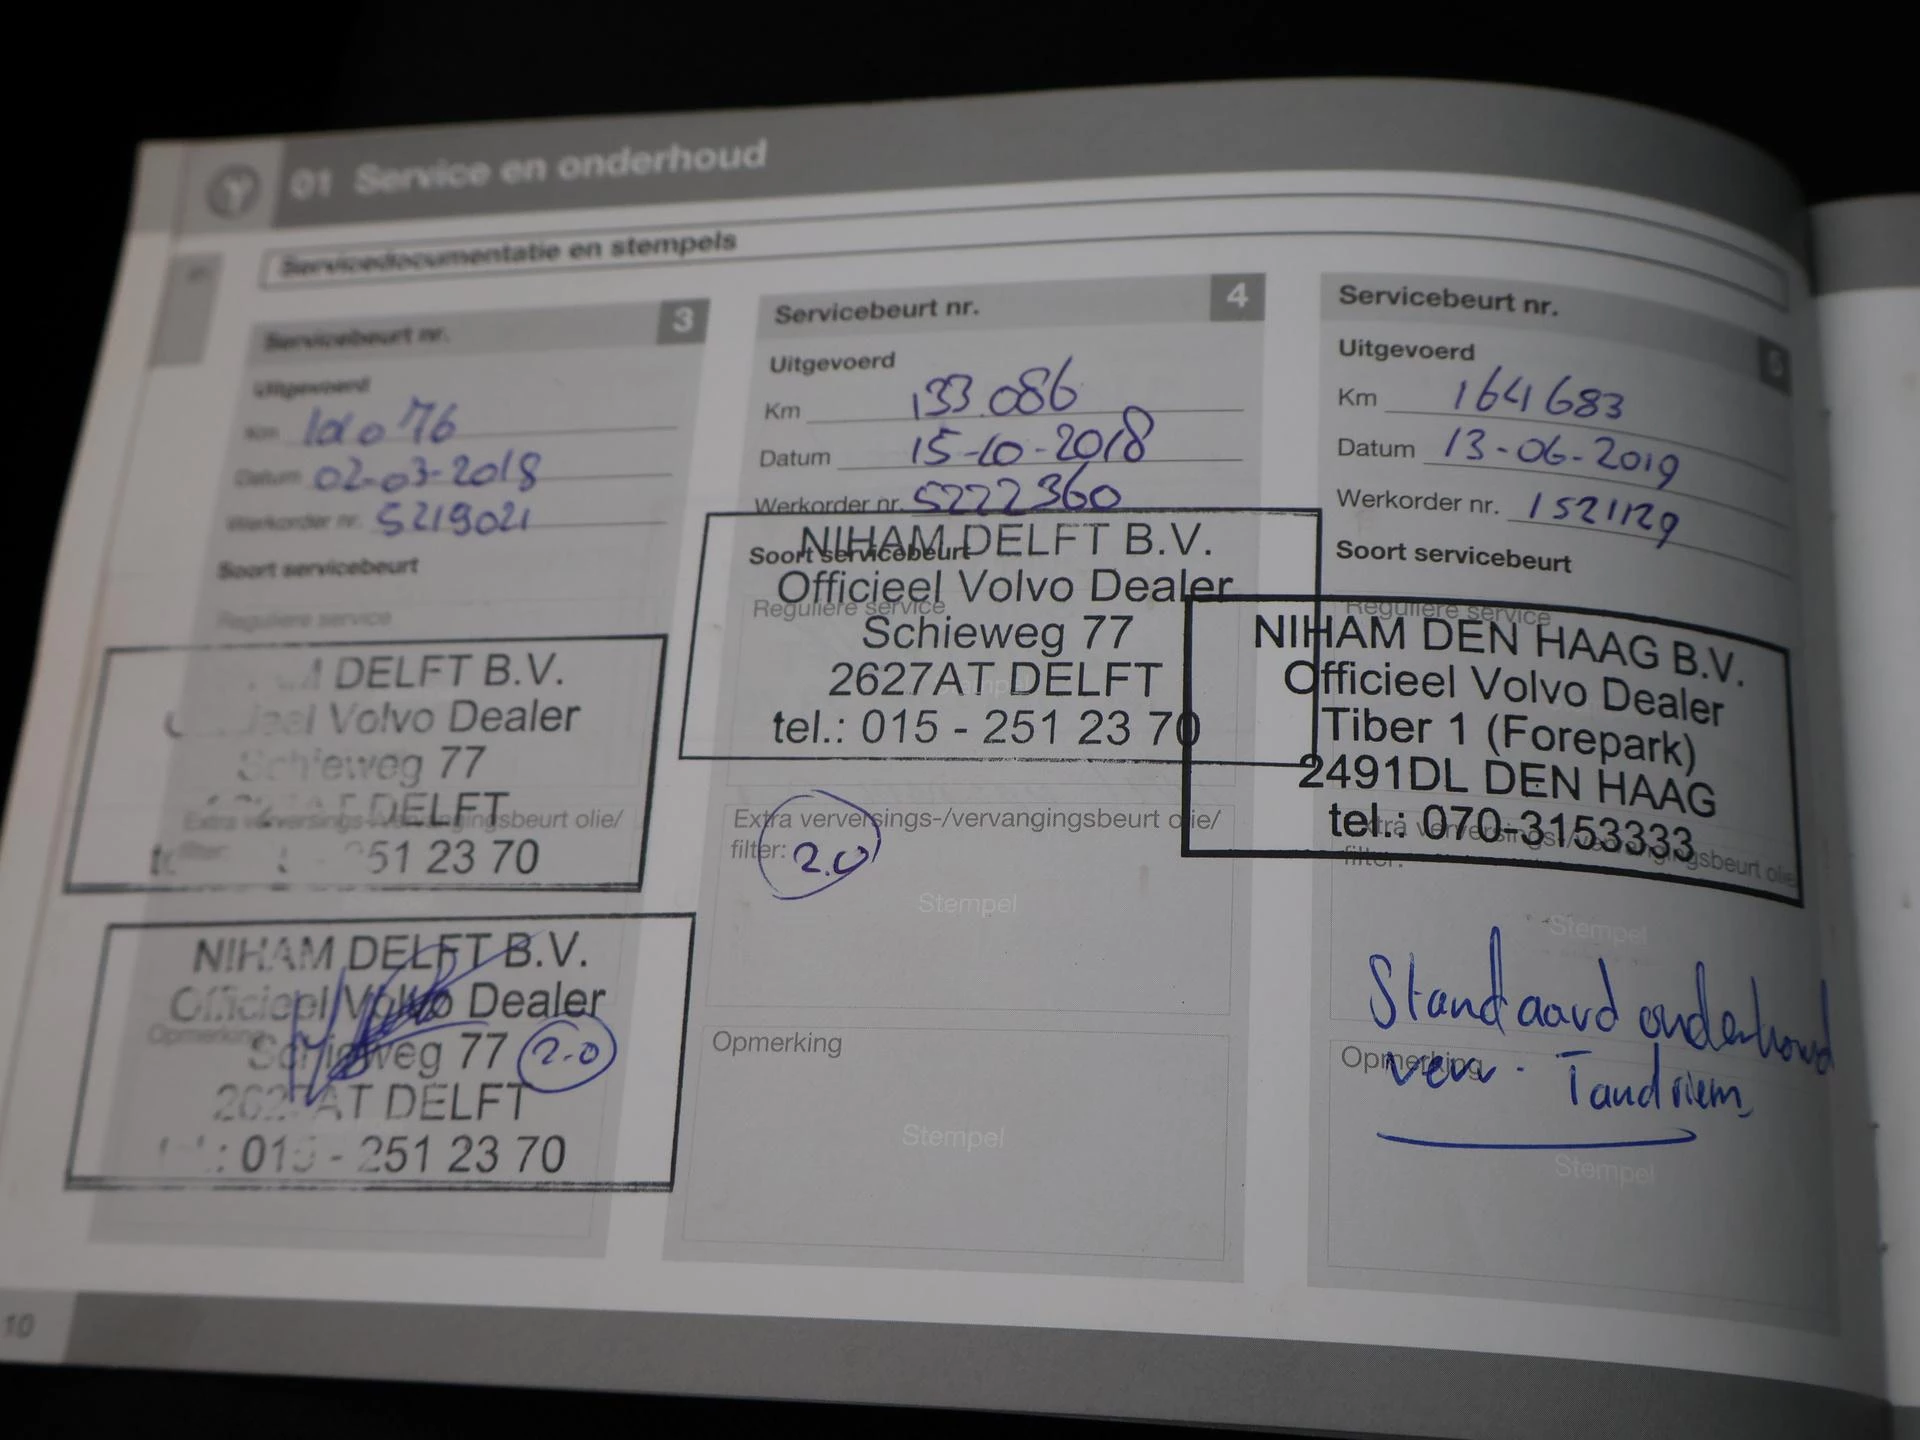 01 Service en onderhoud
Servicedocumentatie en stempels
Servicebeurt nr. 3
Uitgevoerd
Km
Datum 02-03-2018
Werkorder nr. 5219021
Soort servicebeurt
Reguliere service
DELFT B.V.
Volvo Dealer
Schieweg 77
DELFT
Extra verversings-/vervangingsbeurt olie/
filter:
51 23 70
NIHAM DELFT B.V.
Officieel Volvo Dealer
Opmerking
Schieweg 77 2.0
2627AT DELFT
tel.: 015 - 251 23 70
Servicebeurt nr. 4
Uitgevoerd
Km 133.086
Datum 15-10-2018
Werkorder nr. 5222360
NIHAM DELFT B.V.
Soort servicebeurt
Officieel Volvo Dealer
Reguliere service
Schieweg 77
2627AT DELFT
Stempel
tel.: 015 - 251 23 70
Extra verversings-/vervangingsbeurt olie/
filter: 2.0
Stempel
Opmerking
Stempel
Servicebeurt nr. 5
Uitgevoerd
Km 164683
Datum 13-06-2019
Werkorder nr. 1521129
Soort servicebeurt
Reguliere service
NIHAM DEN HAAG B.V.
Officieel Volvo Dealer
Tiber 1 (Forepark)
2491DL DEN HAAG
tel.: 070-3153333
Extra verversings-/vervangingsbeurt olie/
filter:
Stempel
Standaard onderhoud
Opmerking
verv. Tandriem
Stempel
10